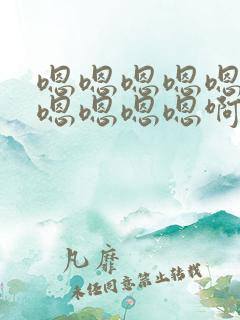 嗯嗯嗯嗯嗯
嗯嗯嗯嗯啊
凡靡
未经同意禁止转载